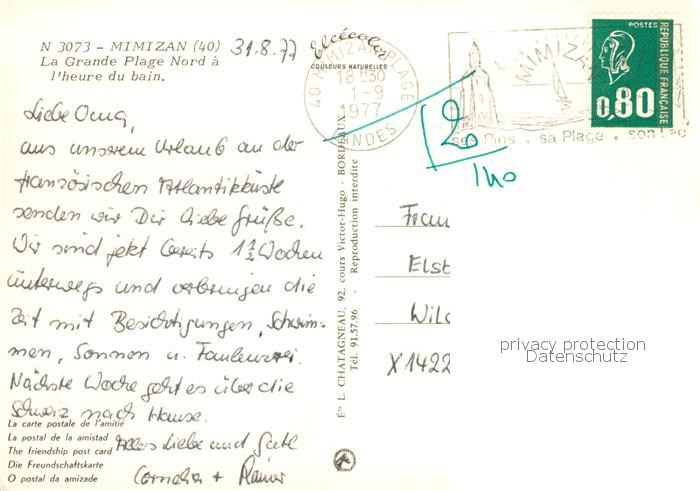 N 3073 - MIMIZAN (40) 31.8.77
La Grande Plage Nord à
l'heure du bain.
Elcécolor
COULEURS NATURELLES
40 MIMIZAN-PLAGE
18H30
1-9
1977
LANDES
MIMIZAN
ses Pins . sa Plage . son Lac
POSTES
RÉPUBLIQUE FRANÇAISE
0,80
Liebe Oma,
aus unserem Urlaub an der
französischen Atlantikküste
senden wir Dir liebe Grüße.
Wir sind jetzt bereits 1 1/2 Wochen
unterwegs und verbringen die
Zeit mit Besichtigungen, Schwim-
men, Sonnen u. Faulenzerei.
Nächste Woche geht es über die
Schweiz nach Hause.
Alles Liebe und Gute
Cornelia + Rainer
La carte postale de l'amitié
La postal de la amistad
The friendship post card
Die Freundschaftskarte
O postal da amizade
Éts L. CHATAGNEAU, 92, cours Victor-Hugo - BORDEAUX
Tél. 91.57.96 - Reproduction interdite
140
Frau
Elst
Wild
X1422
privacy protection
Datenschutz